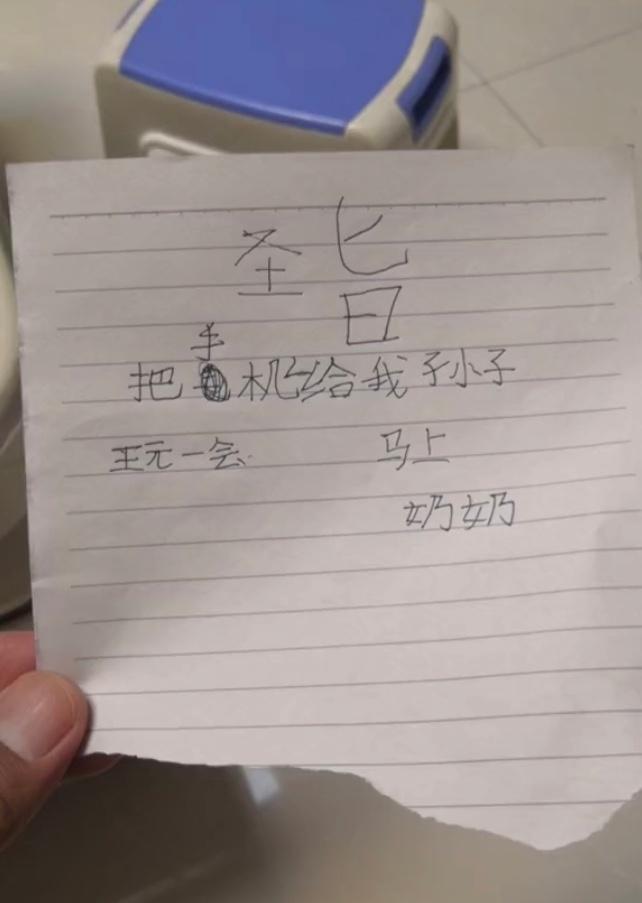 圣旨
把手机给我子小子
王元一会 马上
奶奶